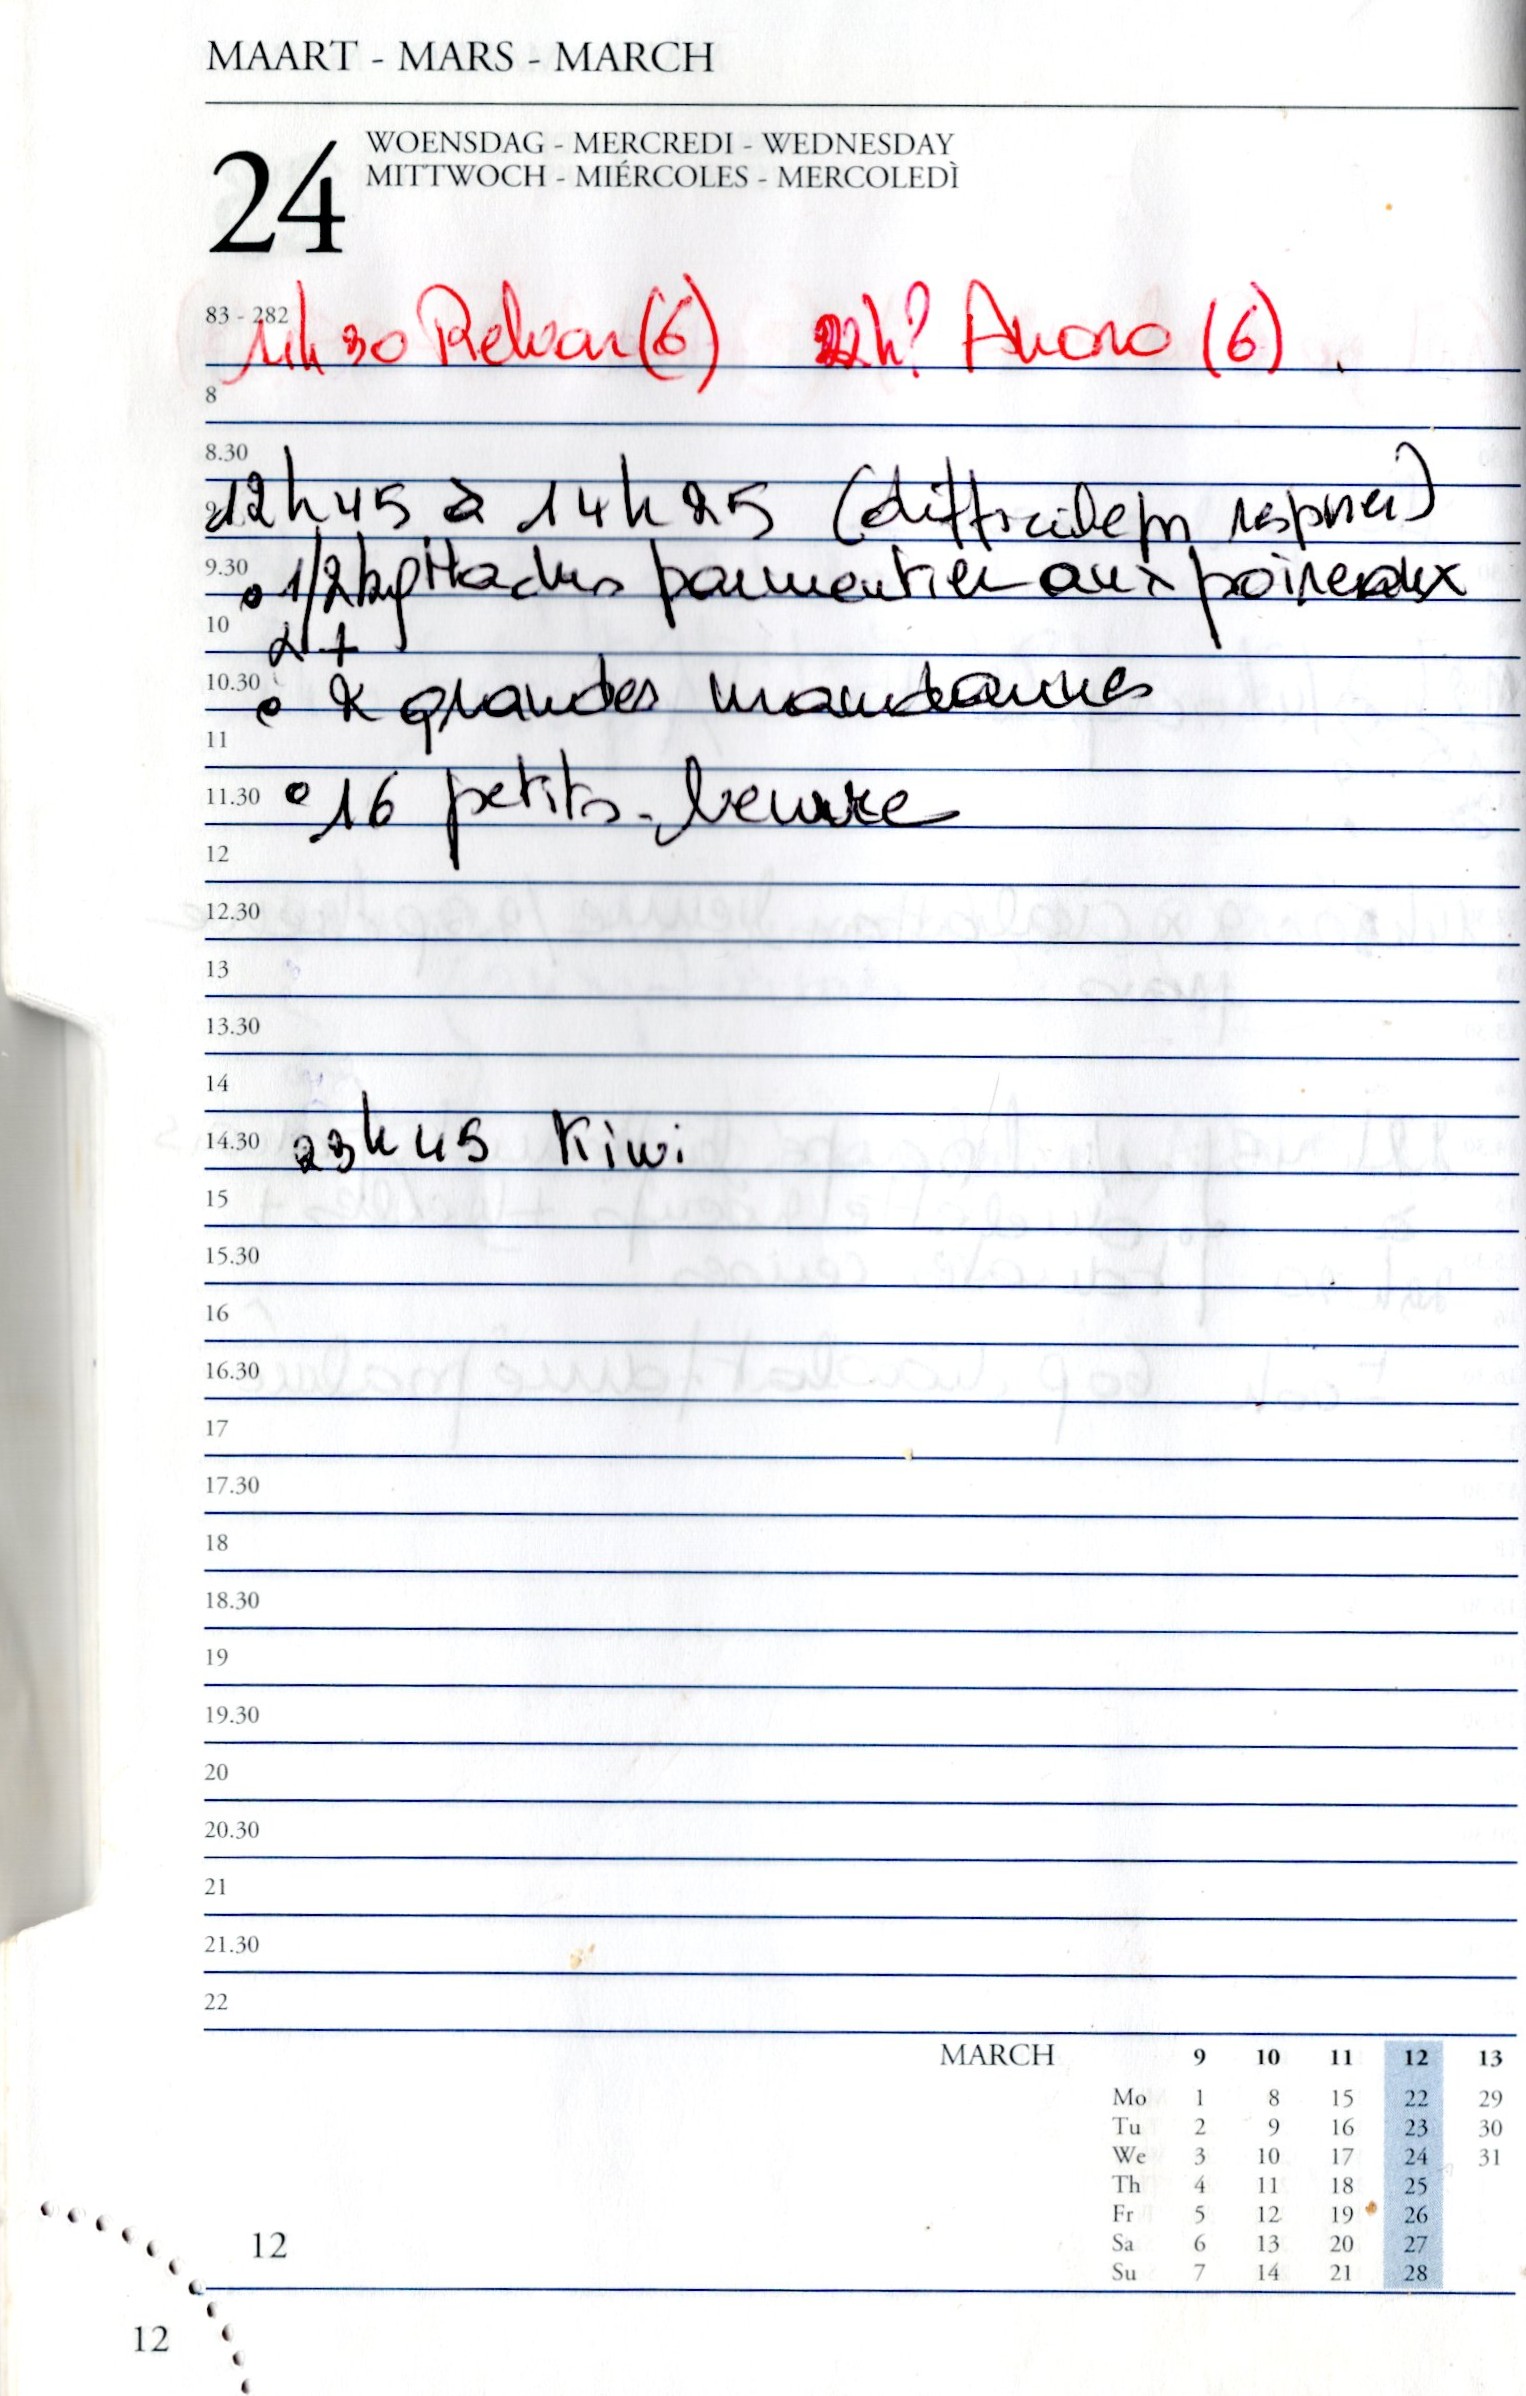 MAART - MARS - MARCH
24
WOENSDAG - MERCREDI - WEDNESDAY
MITTWOCH - MIÉRCOLES - MERCOLEDÌ
83 - 282
11h30 Relvar (6) 22h? Anoro (6)
8
8.30
12h45 à 14h25 (difficile pr respirer)
9.30
• 1/2 kg Hachis parmentier aux poireaux
10
2 +
10.30
• 2 grandes mandarines
11
11.30
• 16 petits-beurre
12
12.30
13
13.30
14
14.30
23h45 Kiwi
15
15.30
16
16.30
17
17.30
18
18.30
19
19.30
20
20.30
21
21.30
22
MARCH 9 10 11 12 13
Mo 1 8 15 22 29
Tu 2 9 16 23 30
We 3 10 17 24 31
Th 4 11 18 25
Fr 5 12 19 26
Sa 6 13 20 27
Su 7 14 21 28
12
12